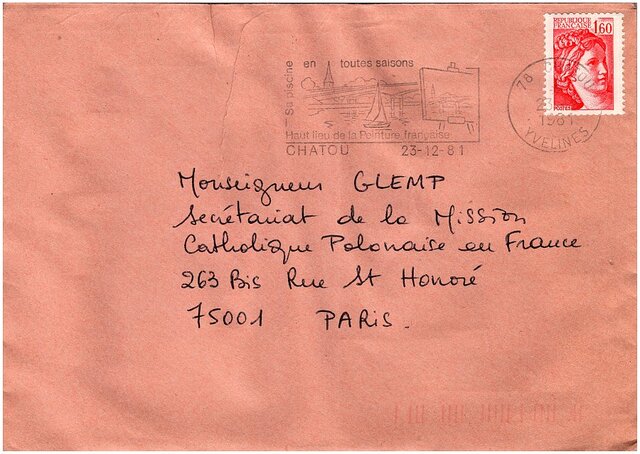 REPUBLIQUE
FRANÇAISE
1,60
Sa piscine
en toutes saisons
Haut lieu de la Peinture française
CHATOU 23-12-81
78
23
1981
YVELINES
Monseigneur GLEMP
Secrétariat de la Mission
Catholique Polonaise en France
263 Bis Rue St Honoré
75001 PARIS.